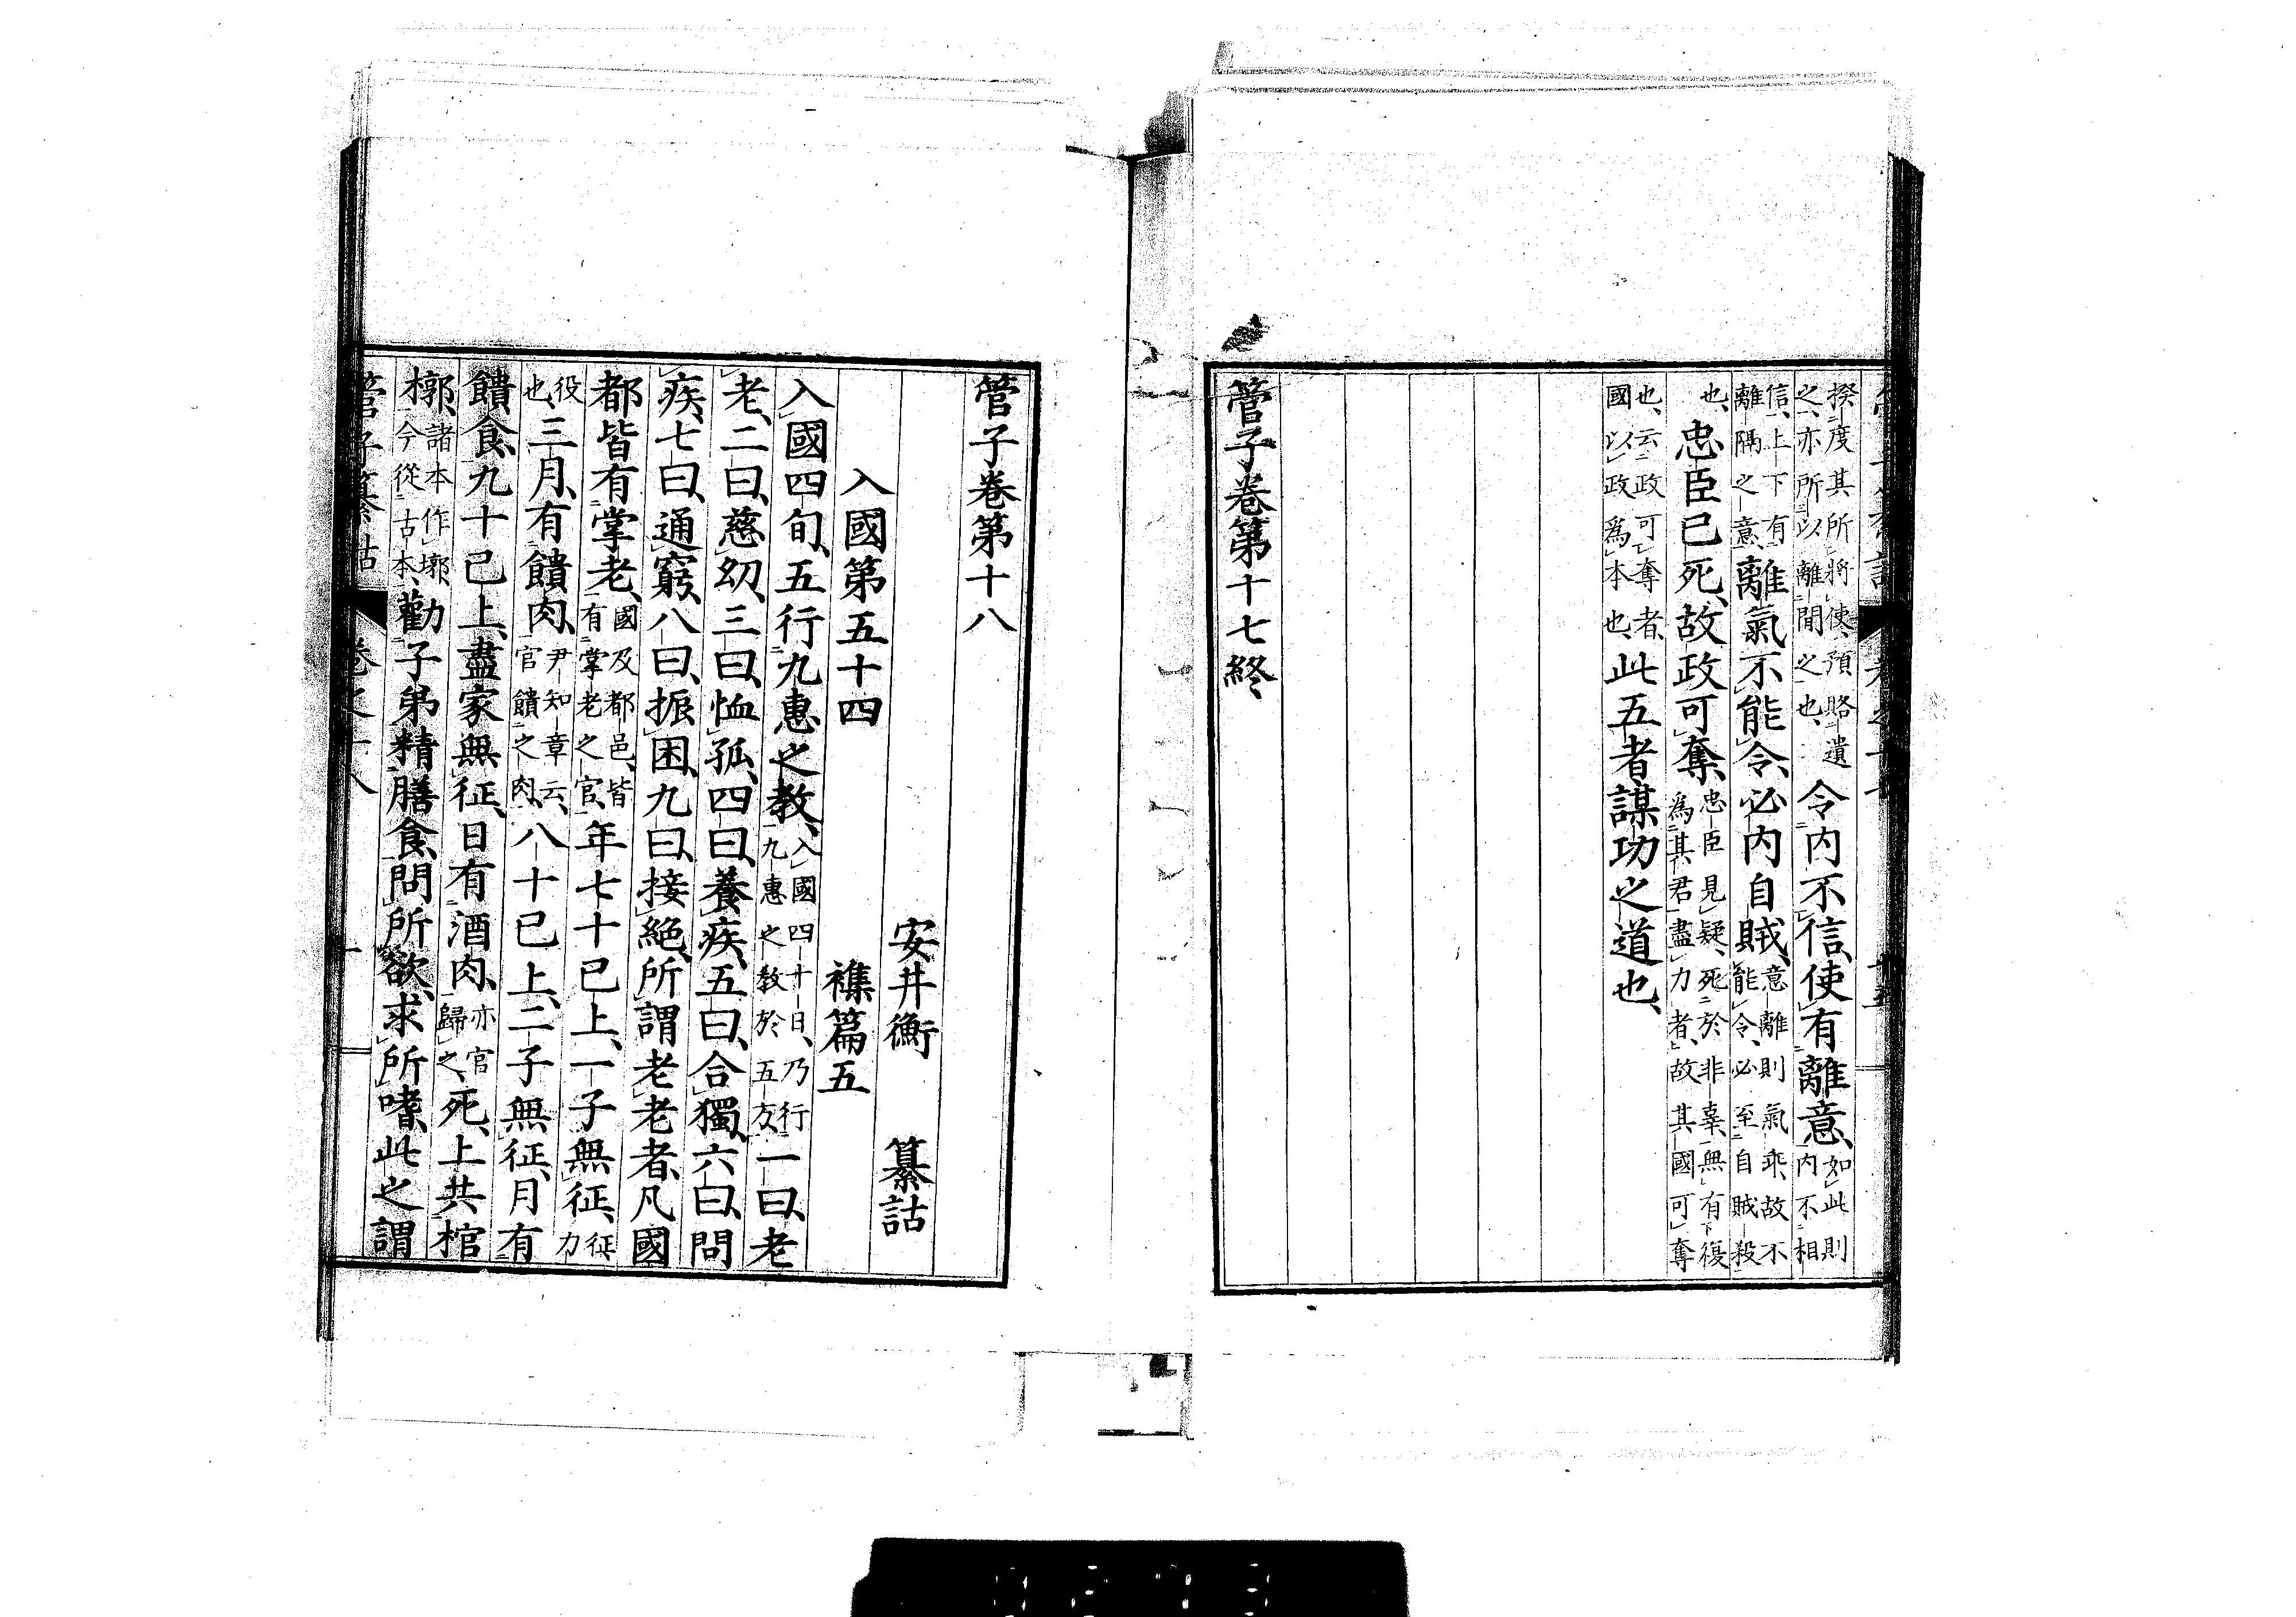 揆度其所將使、預賂遺之、亦所以離間之也、令内不信、使有離意、如此則内不相
信、上下有離隔之意、離氣不能令、必内自賊、意離則氣乖、故不能令、必至自賊殺
也、忠臣已死、故政可奪、忠臣見疑、死於非辜、無有復爲其君盡力者、故其國可奪
也、云政可奪者、國以政爲本也、此五者謀功之道也、
管子卷第十七終、
管子卷第十八
安井衡 纂詁
入國第五十四 襍篇五
入國四旬、五行九惠之教、入國四十日、乃行九惠之教於五方、一曰、老
老、二曰、慈幼、三曰、恤孤、四曰、養疾、五曰、合獨、六曰、問
疾、七曰、通窮、八曰、振困、九曰、接絕、所謂老老者、凡國
都皆有掌老、國及都邑、皆有掌老之官、年七十已上、一子無征、征力
役也、三月、有饋肉、尹知章云、官饋之肉、八十已上、二子無征、月有
饋食、九十已上、盡家無征、日有酒肉、亦官歸之、死、上共棺
槨、諸本作墎、今從古本、勸子弟精膳食、問所欲、求所嗜、此之謂
管子纂詁 卷之十八 一